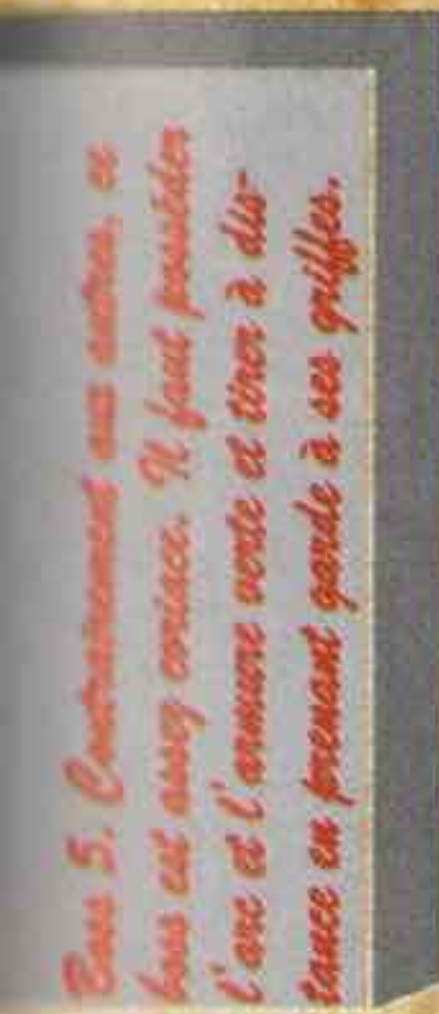 Boss 5. Contrairement aux autres, ce
boss est assez coriace. Il faut posséder
l'arc et l'armure verte et tirer à dis-
tance en prenant garde à ses griffes.